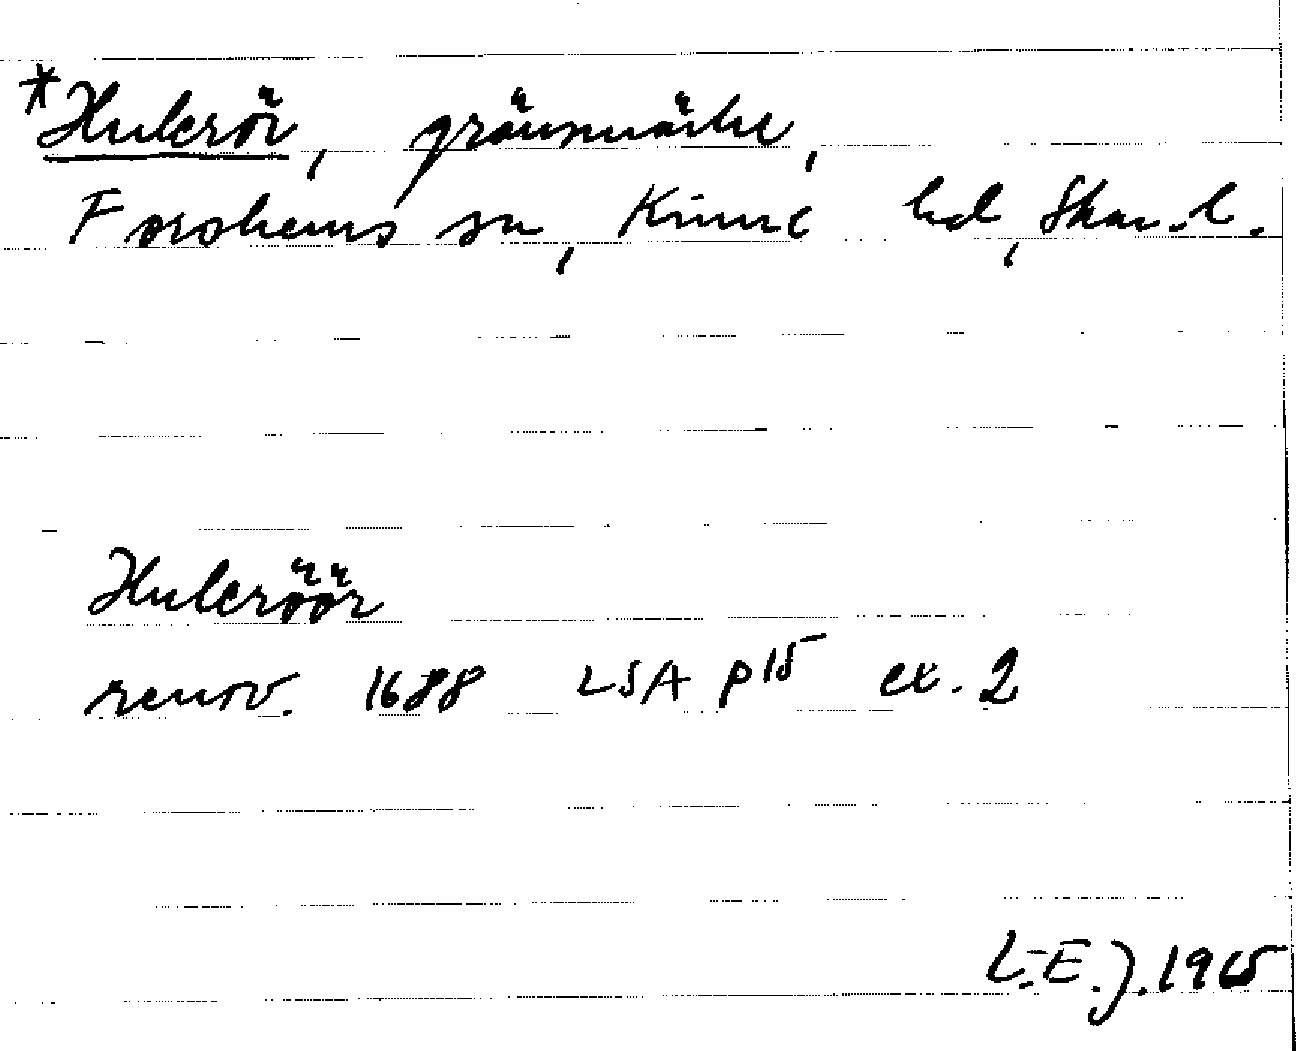 *Hulerör, gränsmärke,
Forshems sn, Kinne hd, Skar. l.
Huleröör
renov. 1688 LSA P15 ex. 2
L.-E. J. 1965